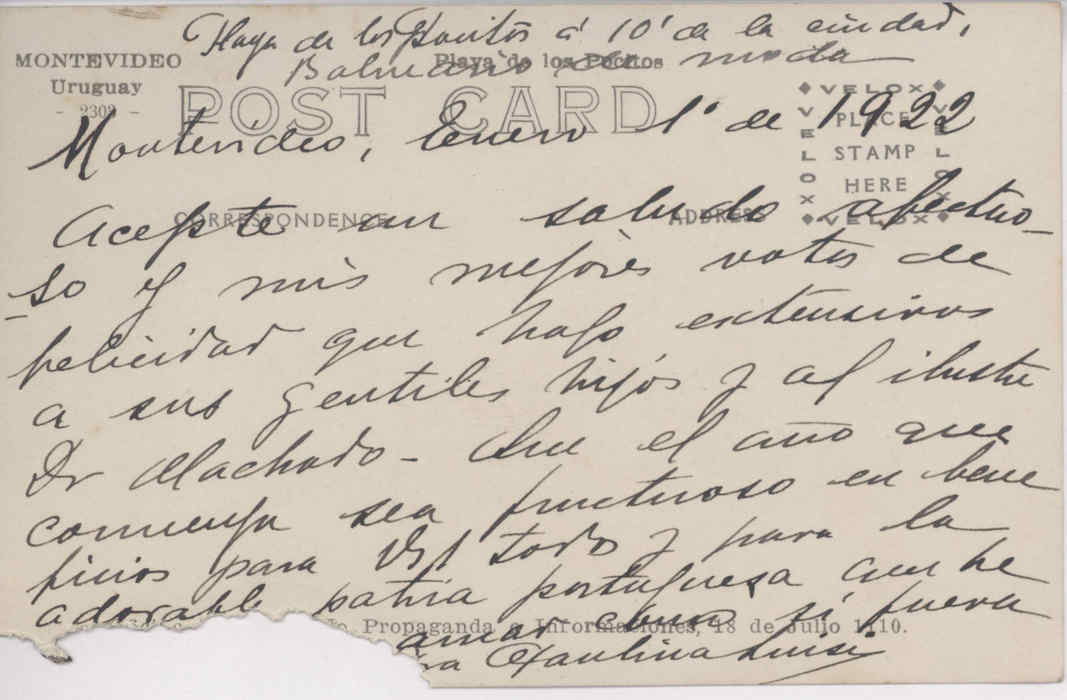 Playa de los Pocitos á 10' de la ciudad,
Balneario de moda
MONTEVIDEO
Uruguay
- 2302 -
Playa de los Pocitos
POST CARD
VELOX
VELOX
VELOX
VELOX
PLACE
STAMP
HERE
Montevideo, Enero 1º de 1922
CORRESPONDENCE
ADDRESS
Acepte un saludo afectuo-
-so y mis mejores votos de
felicidad que hago extensivos
a sus gentiles hijos y al ilustre
Dr Machado - Que el año que
comienza sea fructuoso en bene
ficios para Vds todos y para la
adorable patria portuguesa que he
Propaganda e Informaciones, 18 de Julio 1110.
amar como si fuera
Paulina Luisi